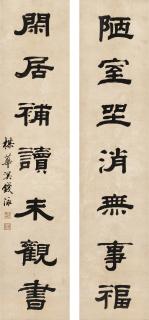 陋室坐消無事福
閑居補讀未觀書
楳華溪錢泳